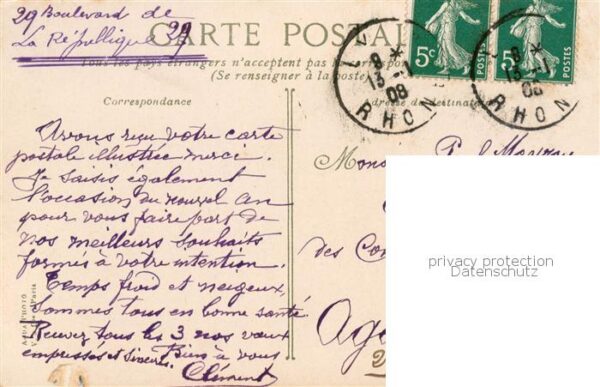 29 Boulevard de
La République 29
CARTE POSTAL
Tous les pays étrangers n'acceptent pas la correspon
(Se renseigner à la poste)
5c
5c
8 *
13 - 1
08
RHON
8 *
13 - 1
08
RHON
Correspondance
Adresse du destinata
Avons reçu votre carte
postale illustrée merci.
Je saisis également
l'occasion du nouvel an
pour vous faire part de
nos meilleurs souhaits
formés à votre intention.
Temps froid et neigeux,
Sommes tous en bonne santé
Recevez tous les 3 nos vœux
empressés et sincères. Bien à vous
Clément
Mons
des Co
Ag
privacy protection
Datenschutz
Paris